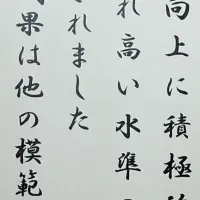 向上に積極
れ高い水準
れました
果は他の模範